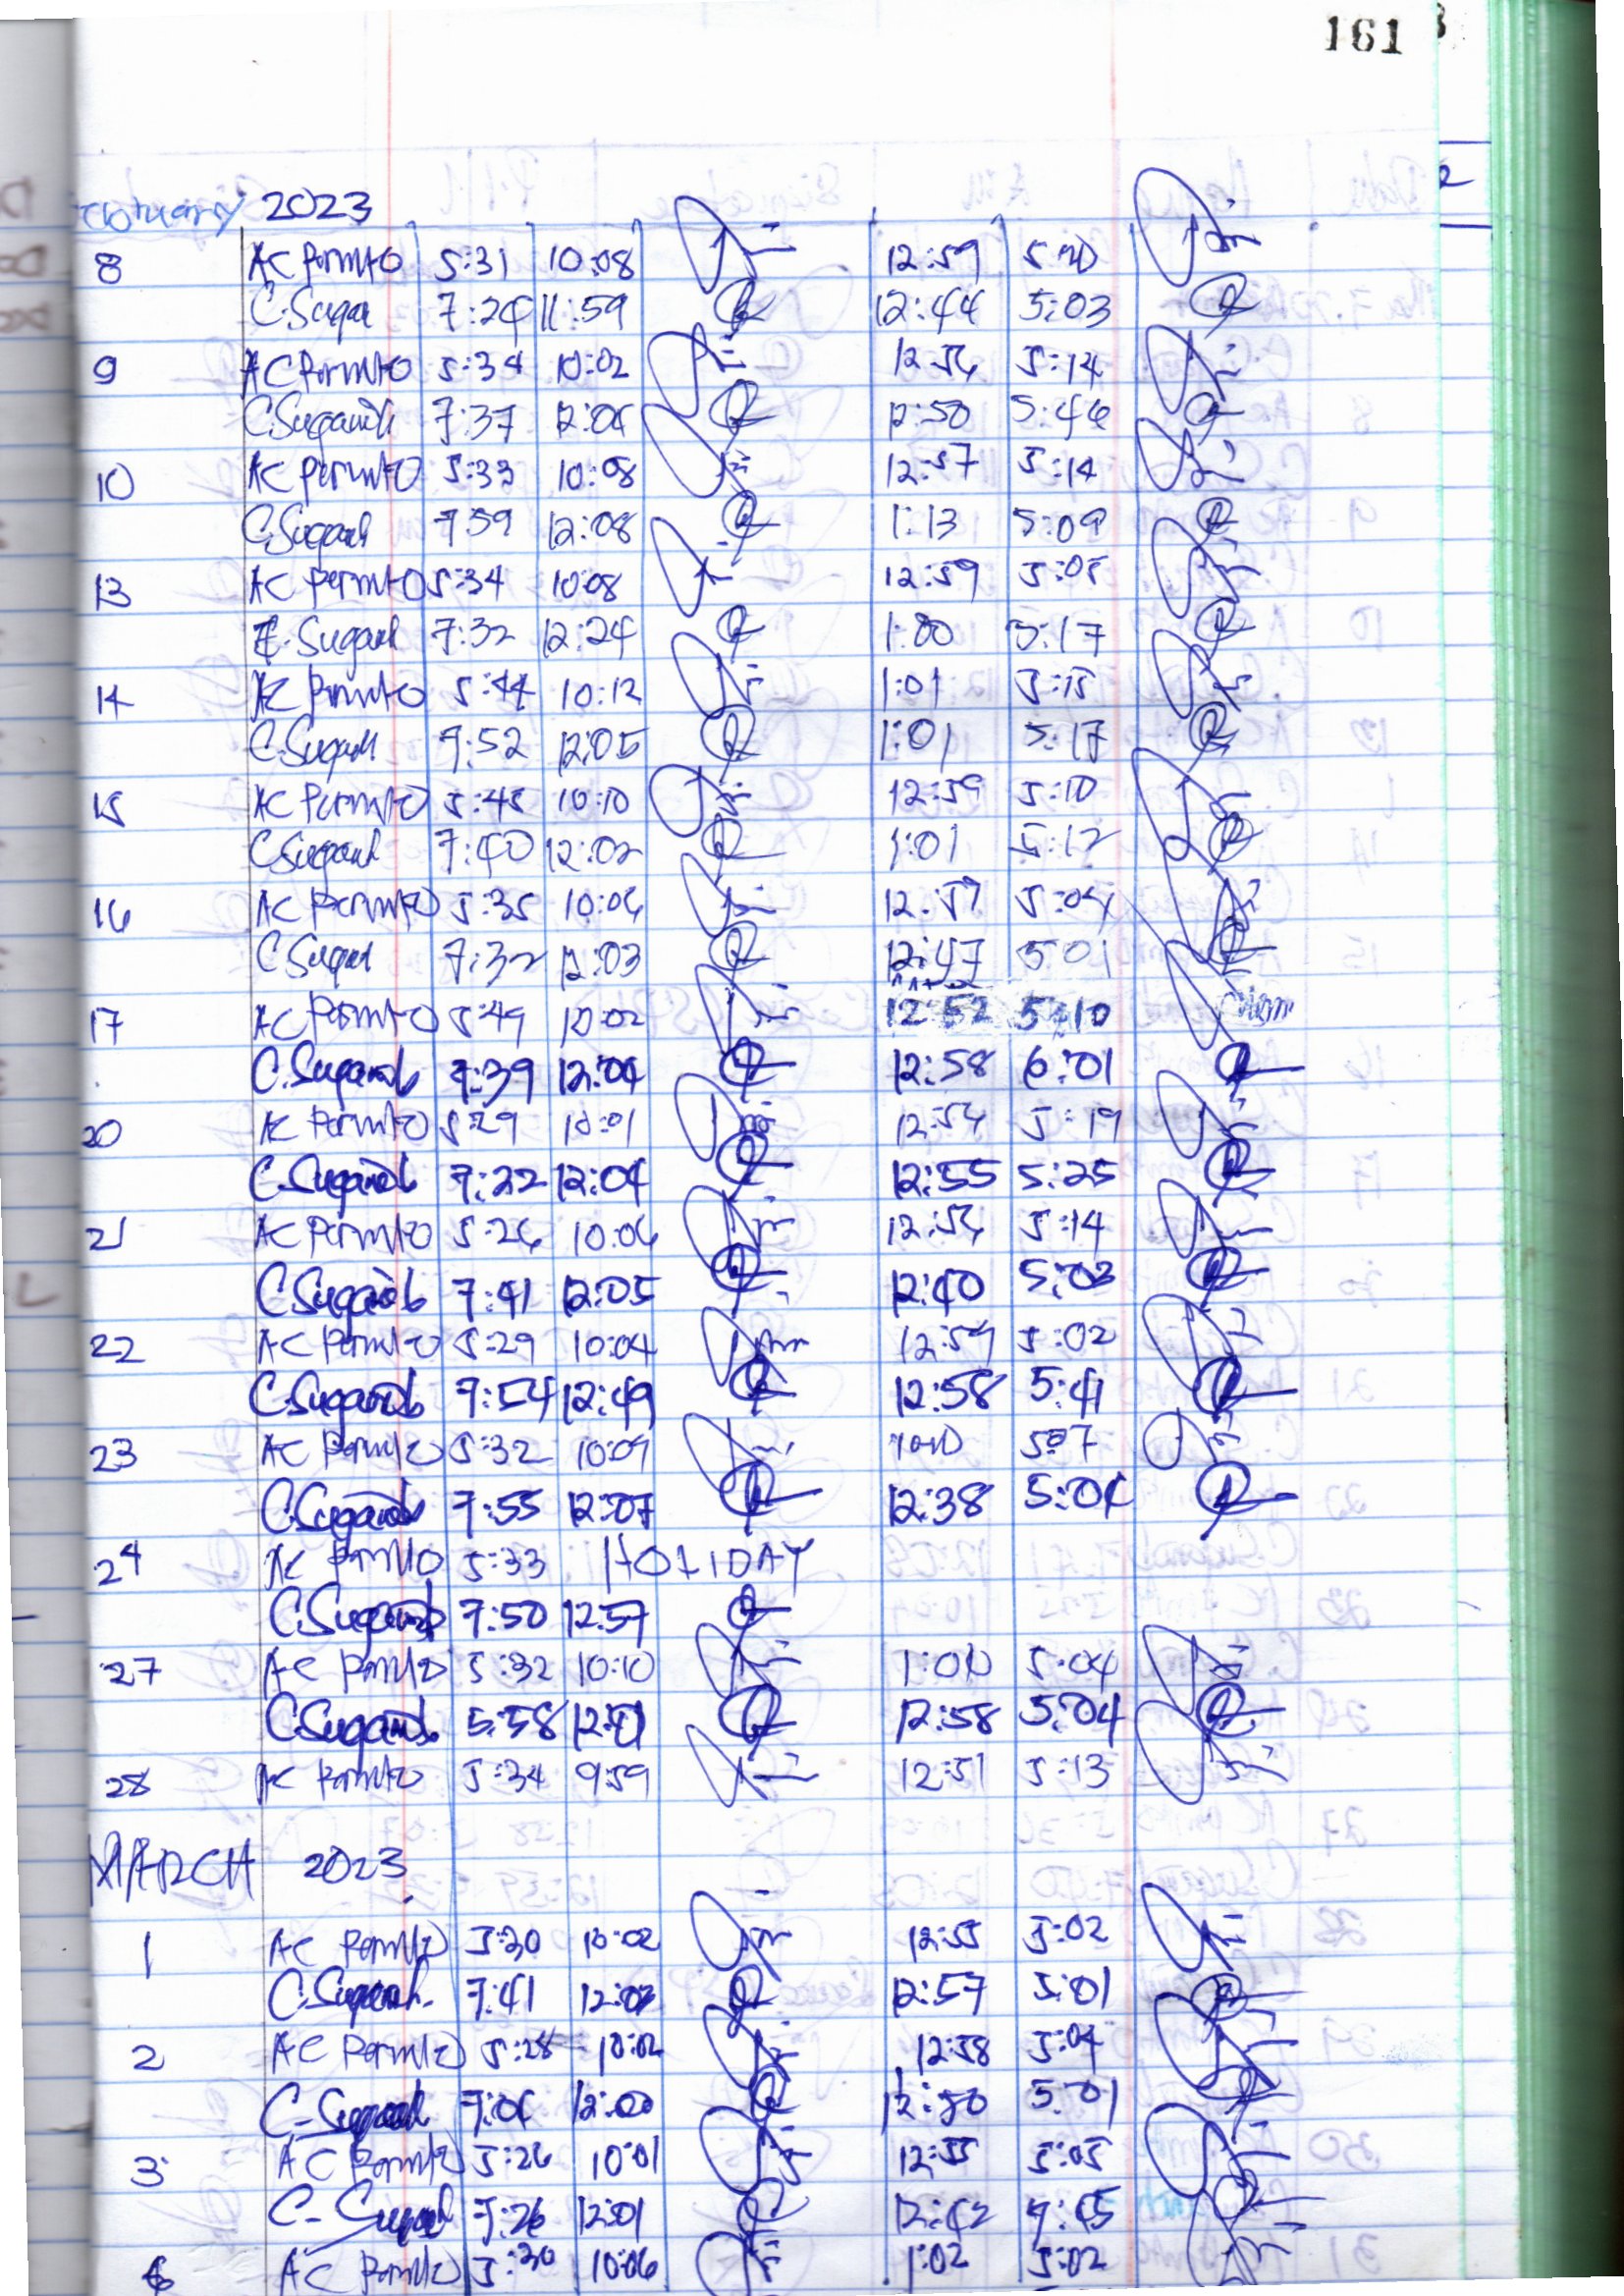 161
2023
8 AC Permito 5:31 10:08 12:59 5:20
C. Sugar 7:24 11:59 12:44 5:03
9 AC Permito 5:34 10:02 12:56 5:14
C. Suganob 7:37 12:04 12:50 5:46
10 AC Permito 5:33 10:08 12:57 5:14
C. Suganob 7:59 12:08 1:13 5:09
13 AC Permito 5:34 10:08 12:59 5:05
C. Suganob 7:32 12:24 1:00 5:17
14 AC Permito 5:44 10:12 1:01 5:15
C. Suganob 7:52 12:05 1:01 5:17
15 AC Permito 5:45 10:10 12:59 5:10
C. Suganob 7:40 12:02 1:01 5:12
16 AC Permito 5:35 10:06 12:57 5:04
C. Sugar 7:32 12:03 12:47 5:01
17 AC Permito 5:49 10:02 12:52 5:10
C. Suganob 7:39 12:04 12:58 6:01
20 AC Permito 5:29 10:01 12:54 5:19
C. Suganob 7:22 12:04 12:55 5:25
21 AC Permito 5:26 10:06 12:56 5:14
C. Suganob 7:41 12:05 12:40 5:03
22 AC Permito 5:29 10:04 12:59 5:02
C. Suganob 7:54 12:49 12:58 5:41
23 AC Permito 5:32 10:09 5:07
C. Suganob 7:55 12:07 12:38 5:04
24 AC Permito 5:33 HOLIDAY
C. Suganob 7:50 12:57
27 AC Permito 5:32 10:10 1:00 5:04
C. Suganob 5:58 12:01 12:58 5:04
28 AC Permito 5:34 9:59 12:51 5:13
MARCH 2023
1 AC Permito 5:30 10:02 12:55 5:02
C. Suganob 7:41 12:02 12:57 5:01
2 AC Permito 5:28 10:02 12:58 5:04
C. Suganob 7:04 12:00 12:50 5:01
3 AC Permito 5:26 10:01 12:55 5:05
C. Suganob 7:26 12:01 12:42 4:45
AC Permito 5:30 10:06 1:02 5:02